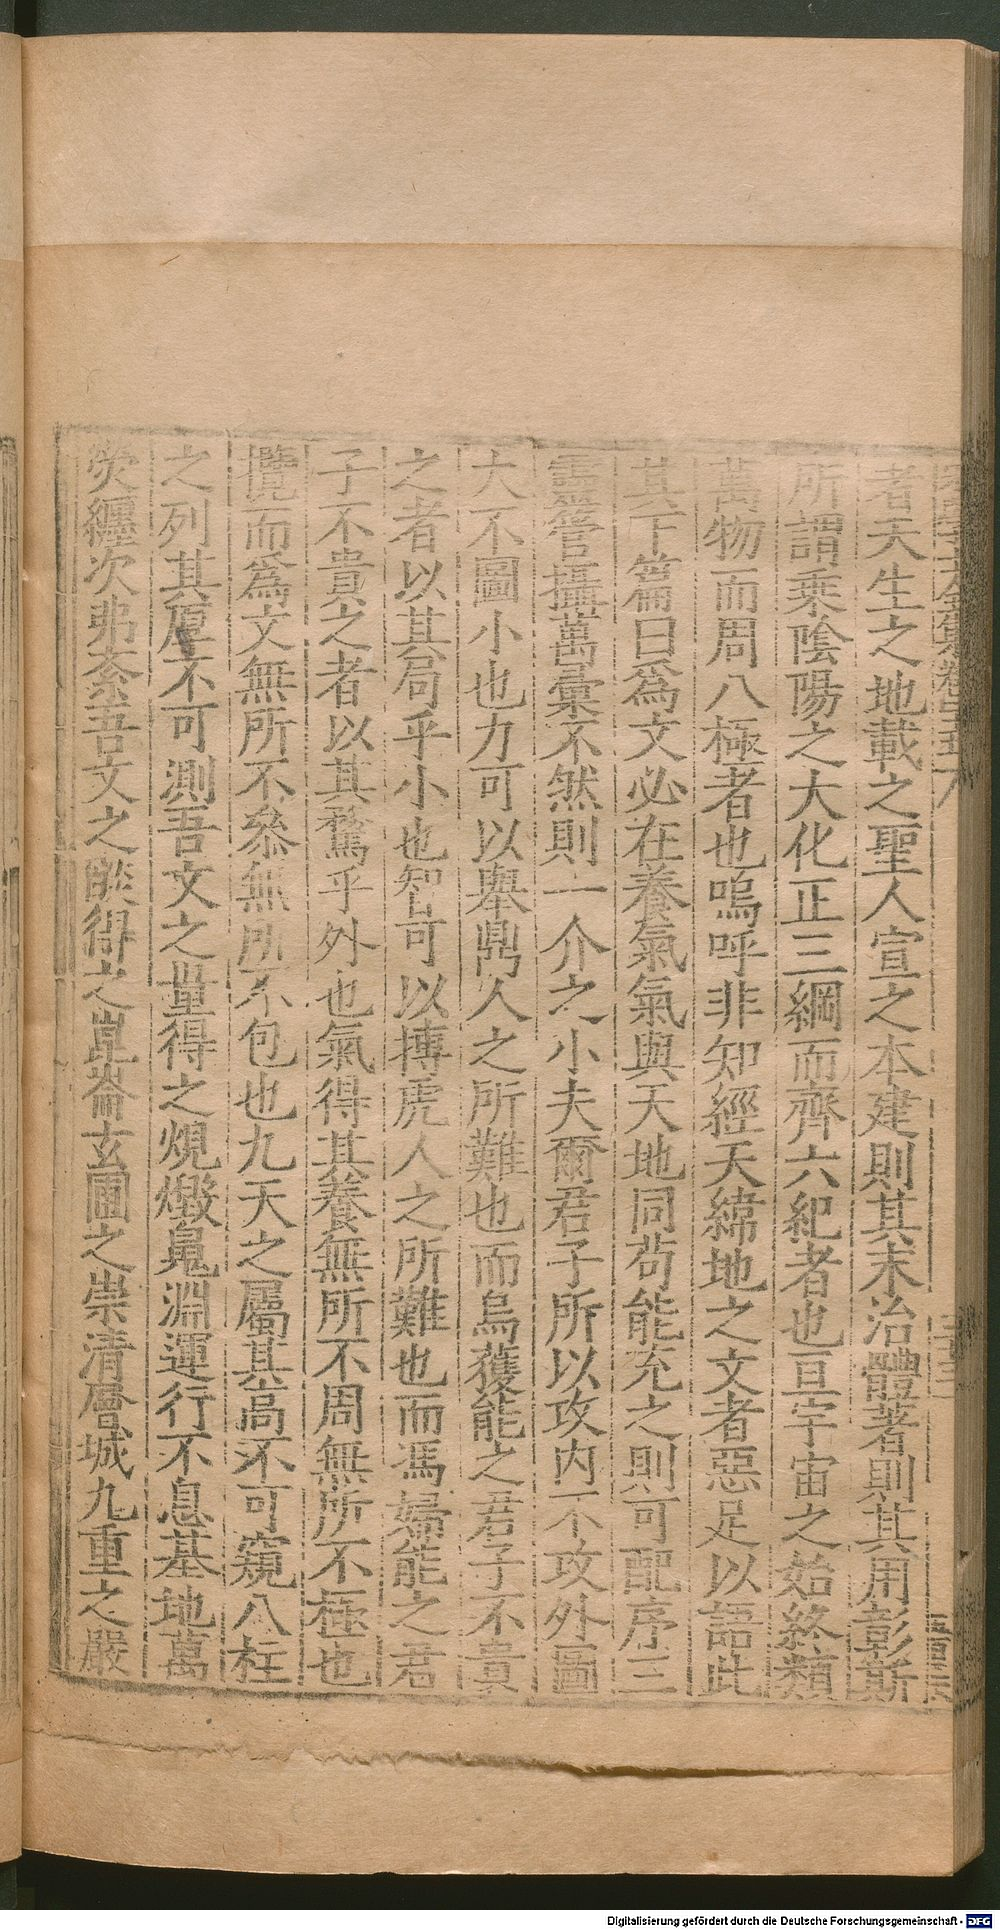 者天生之地載之聖人宣之本建則其末治體著則其用彰斯
所謂乘陰陽之大化正三綱而齊六紀者也亘宇宙之始終類
萬物而周八極者也嗚呼非知經天緯地之文者惡足以語此
其下篇曰爲文必在養氣氣與天地同茍能充之則可配序三
靈管攝萬彙不然則一介之小夫爾君子所以攻内不攻外圖
大不圖小也力可以舉鼎人之所難也而烏獲能之君子不貴
之者以其局乎小也智可以搏虎人之所難也而馮婦能之君
子不貴之者以其騖乎外也氣得其養無所不周無所不極也
攬而爲文無所不參無所不包也九天之屬其高不可窺八柱
之列其厚不可測吾文之量得之焜燬鬼淵運行不息基地萬
熒纏次弗紊吾文之燄得之崑崙玄圃之崇清層城九重之嚴
Digitalisierung gefördert durch die Deutsche Forschungsgemeinschaft - DFG